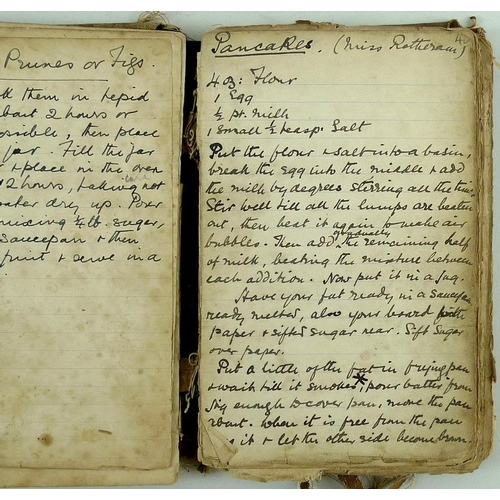 Prunes or Figs.
them in tepid
about 2 hours or
possible, then place
jar. Fill the jar
+ place in the oven
2 hours, taking not
water dry up. Pour
mixing ¼ lb. sugar,
saucepan + then
fruit + serve in a
Pancakes. (Miss Rotheram)
4 oz: Flour
1 Egg
½ pt. Milk
1 Small ½ teasp: Salt
Put the flour + salt into a basin,
break the egg into the middle + add
the milk by degrees stirring all the time.
Stir well till all the lumps are beaten
out, then beat it again to make air
bubbles. Then add gradually the remaining half
of milk, beating the mixture between
each addition. Now put it in a jug.
Have your fat ready, in a saucepan
ready melted, also your board with
paper + sifted sugar near. Sift sugar
over paper.
Put a little of the fat in frying pan
+ wait till it smokes,* pour batter from
jug enough to cover pan, move the pan
about. When it is free from the pan
it + let the other side become brown.